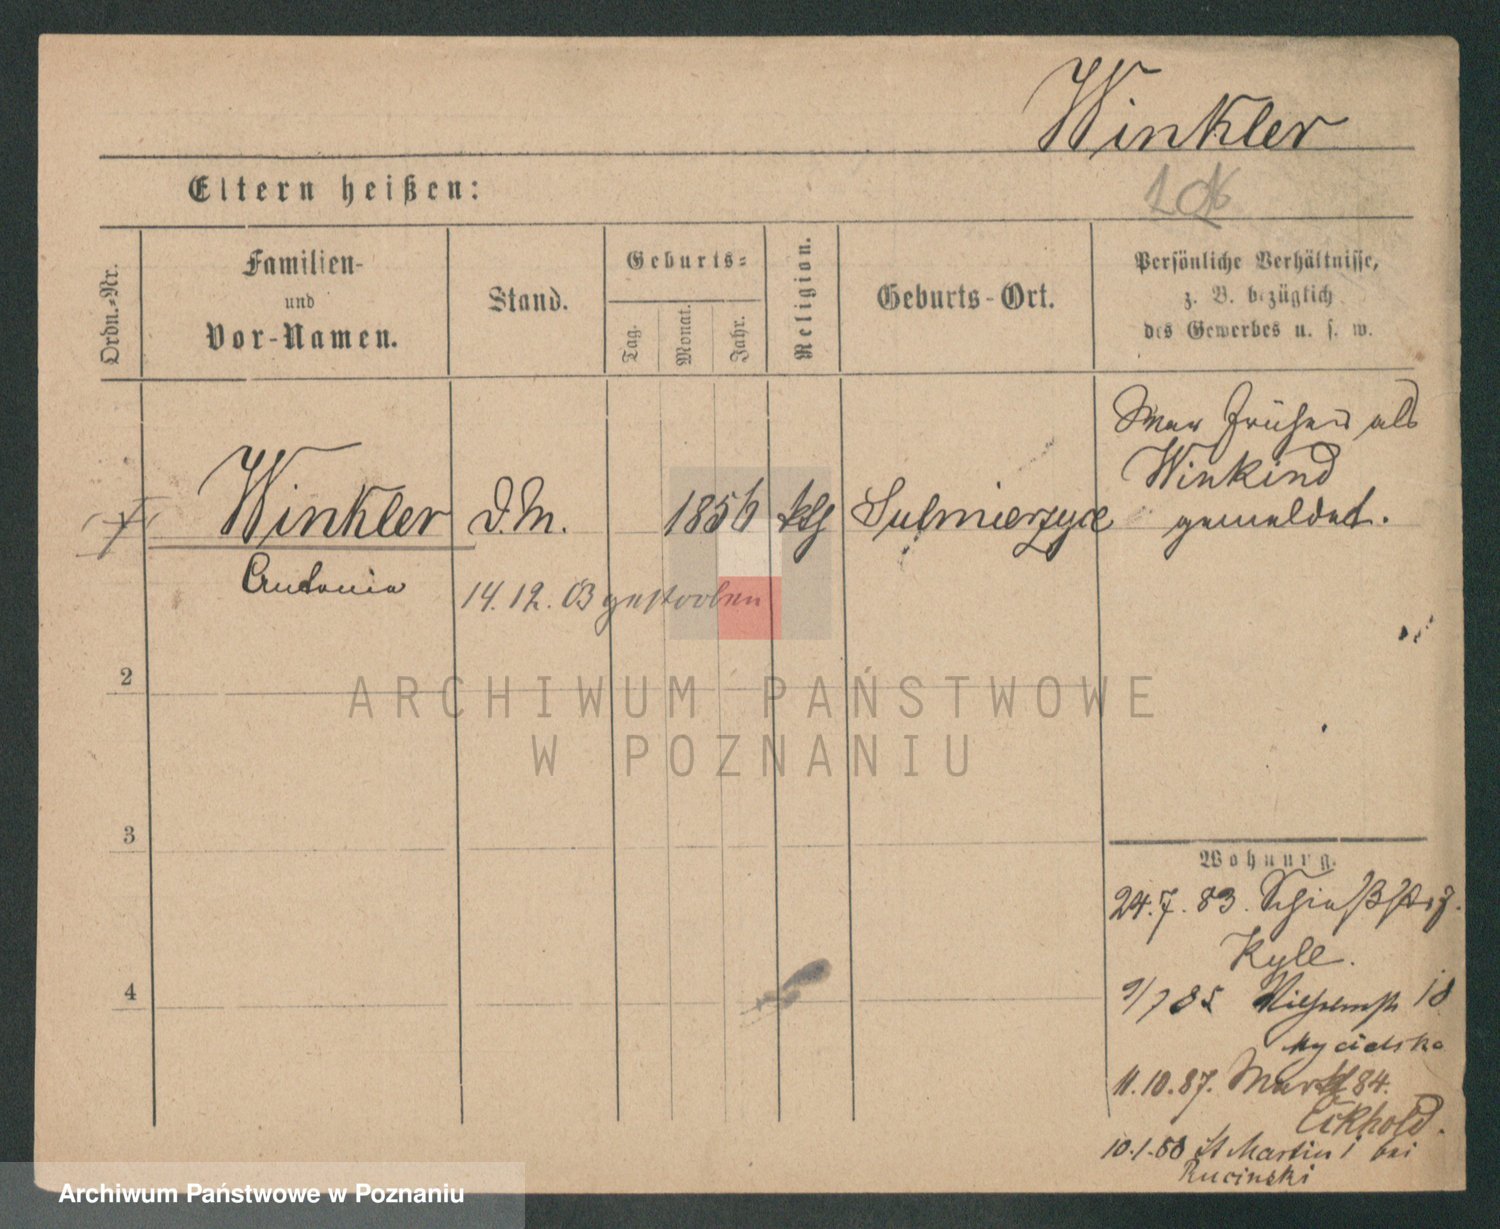 Winkler
Eltern heißen:
Ordn.-Nr.
Familien-
und
Vor-Namen.
Stand.
Geburts-
Tag.
Monat.
Jahr.
Religion.
Geburts-Ort.
Persönliche Verhältnisse,
z. B. bezüglich
des Gewerbes u. s. w.
War früher als
Winkind
gemeldet.
Winkler
D.M.
1856
ktl
Sulmierzyce
Antonia
14.12.03 gestorben
2
ARCHIWUM PAŃSTWOWE
W POZNANIU
3
Wohnung.
24.7.83. Schießstr
Kyll.
4
9/7 85 Wilhelmstr 18
Mycielska
11.10.87. Markt 84.
Eckhold.
10.1.88 St Martin 1 bei
Rucinski
Archiwum Państwowe w Poznaniu